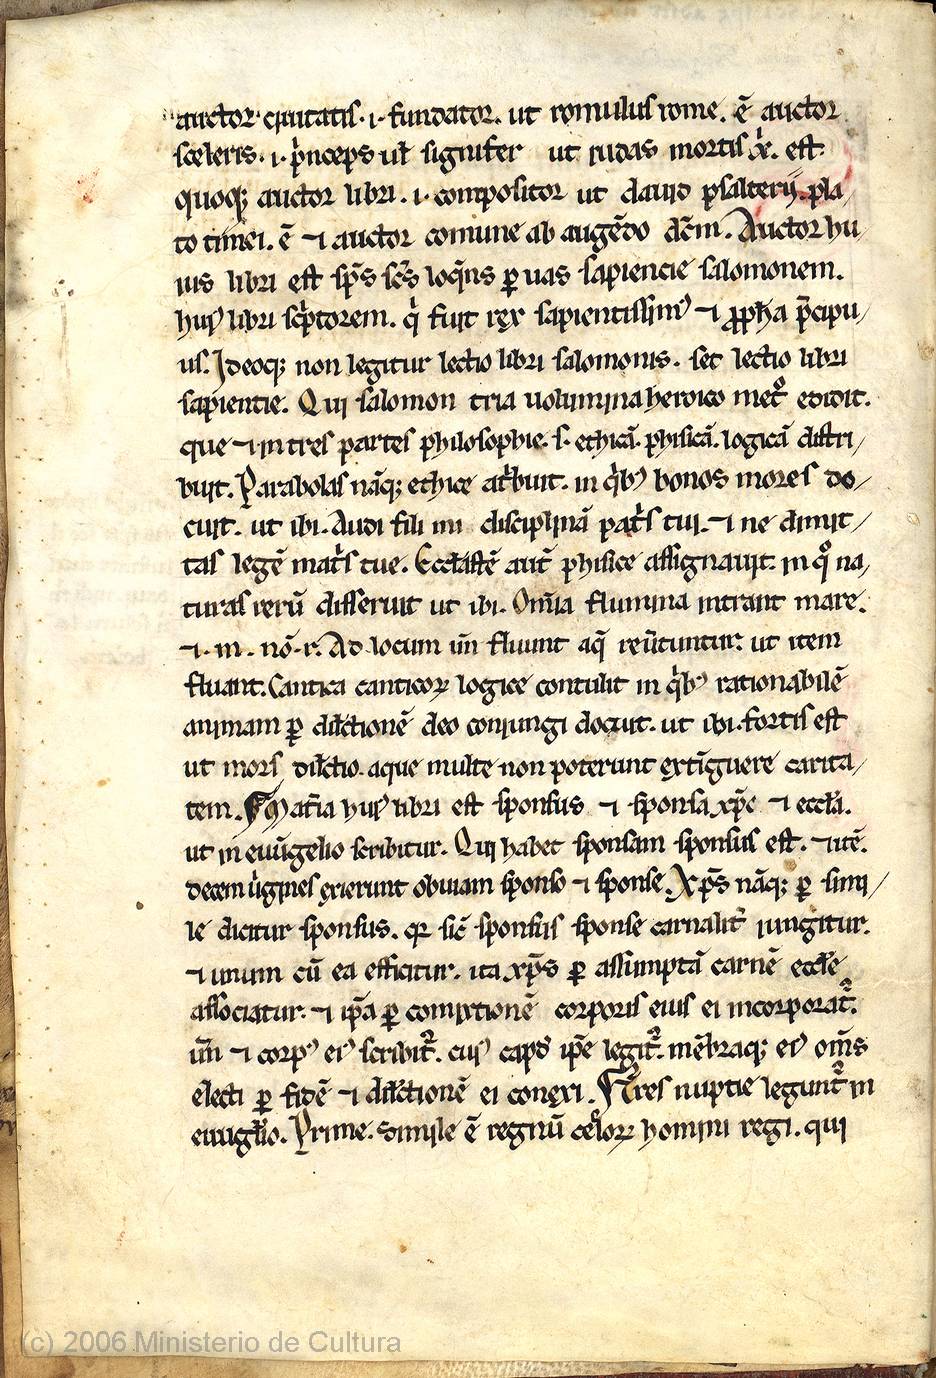 auctor ciuitatis .i. fundator. ut romulus rome. ē auctor
sceleris .i. p̍nceps ut̄ signifer ut iudas mortis x̍. est
quoq; auctor libri .i. compositor ut dauid psalterij. pla/
to timei. ē ⁊ auctor comune ab augēdo dc̄m. Auctor hu/
ius libri est sp̄s sc̄s loq̄ns ꝑ uas sapiencie salomonem.
huiꝰ libri sc̍ptorem. q̍ fuit rex sapientissimꝰ ⁊ ꝓpħa p̄cipu/
us. Ideoq; non legitur lectio libri salomonis. set lectio libri
sapientie. Qui salomon tria uolumina heroico metͦ edidit.
que ⁊ in tres partes philosophie .s. ethicā. phisicā. logicā distri/
buit. Parabolas nāq; ethice at̍buit. in q̍bꝰ bonos mores do/
cuit. ut ibi. Audi fili mi disciplinā pat̍s tui. ⁊ ne dimit/
tas legē mat̍s tue. Eccl̄astē aut̄ phisice assignauit. in qͦ na/
turas rerū disseruit ut ibi. Om̄ia flumina intrant mare.
⁊ .m. nō .r. Ad locum un̄ fluunt aq̄ reūtuntur. ut item
fluant. Cantica canticoꝝ logice contulit in q̍bꝰ rationabilē
animam ꝑ dilc̄tionē deo coniungi docuit. ut ibi. fortis est
ut mors dilc̄tio. aque multe non poterunt extinguere carita/
tem. Mat̄ia huiꝰ libri est sponsus ⁊ sponsa xp̄c ⁊ eccl̄a.
ut in euūgelio scribitur. Qui habet sponsam sponsus est. ⁊ itē.
decem ūgines exierunt obuiam sponso ⁊ sponse. Xp̄s nāq; ꝑ simi/
le dicitur sponsus. qꝛ sic̄ sponsus sponse carnalit̄ iungitur.
⁊ unum cū ea efficitur. ita xp̄s ꝑ assumptā carnē eccl̄e
associatur. ⁊ ip̄a ꝑ comixtionē corporis eius ei incorporat᷑.
un̄ ⁊ corpꝰ eiꝰ scribit᷑. cuiꝰ capđ ip̄e legit᷑. mēbraq; eiꝰ om̄s
electi ꝑ fidē ⁊ dilc̄tionē ei conexi. Tres nuptie legunt᷑ in
euuglīo. Prime. Simile ē regnū celoꝝ homini regi. qui
(c) 2006 Ministerio de Cultura